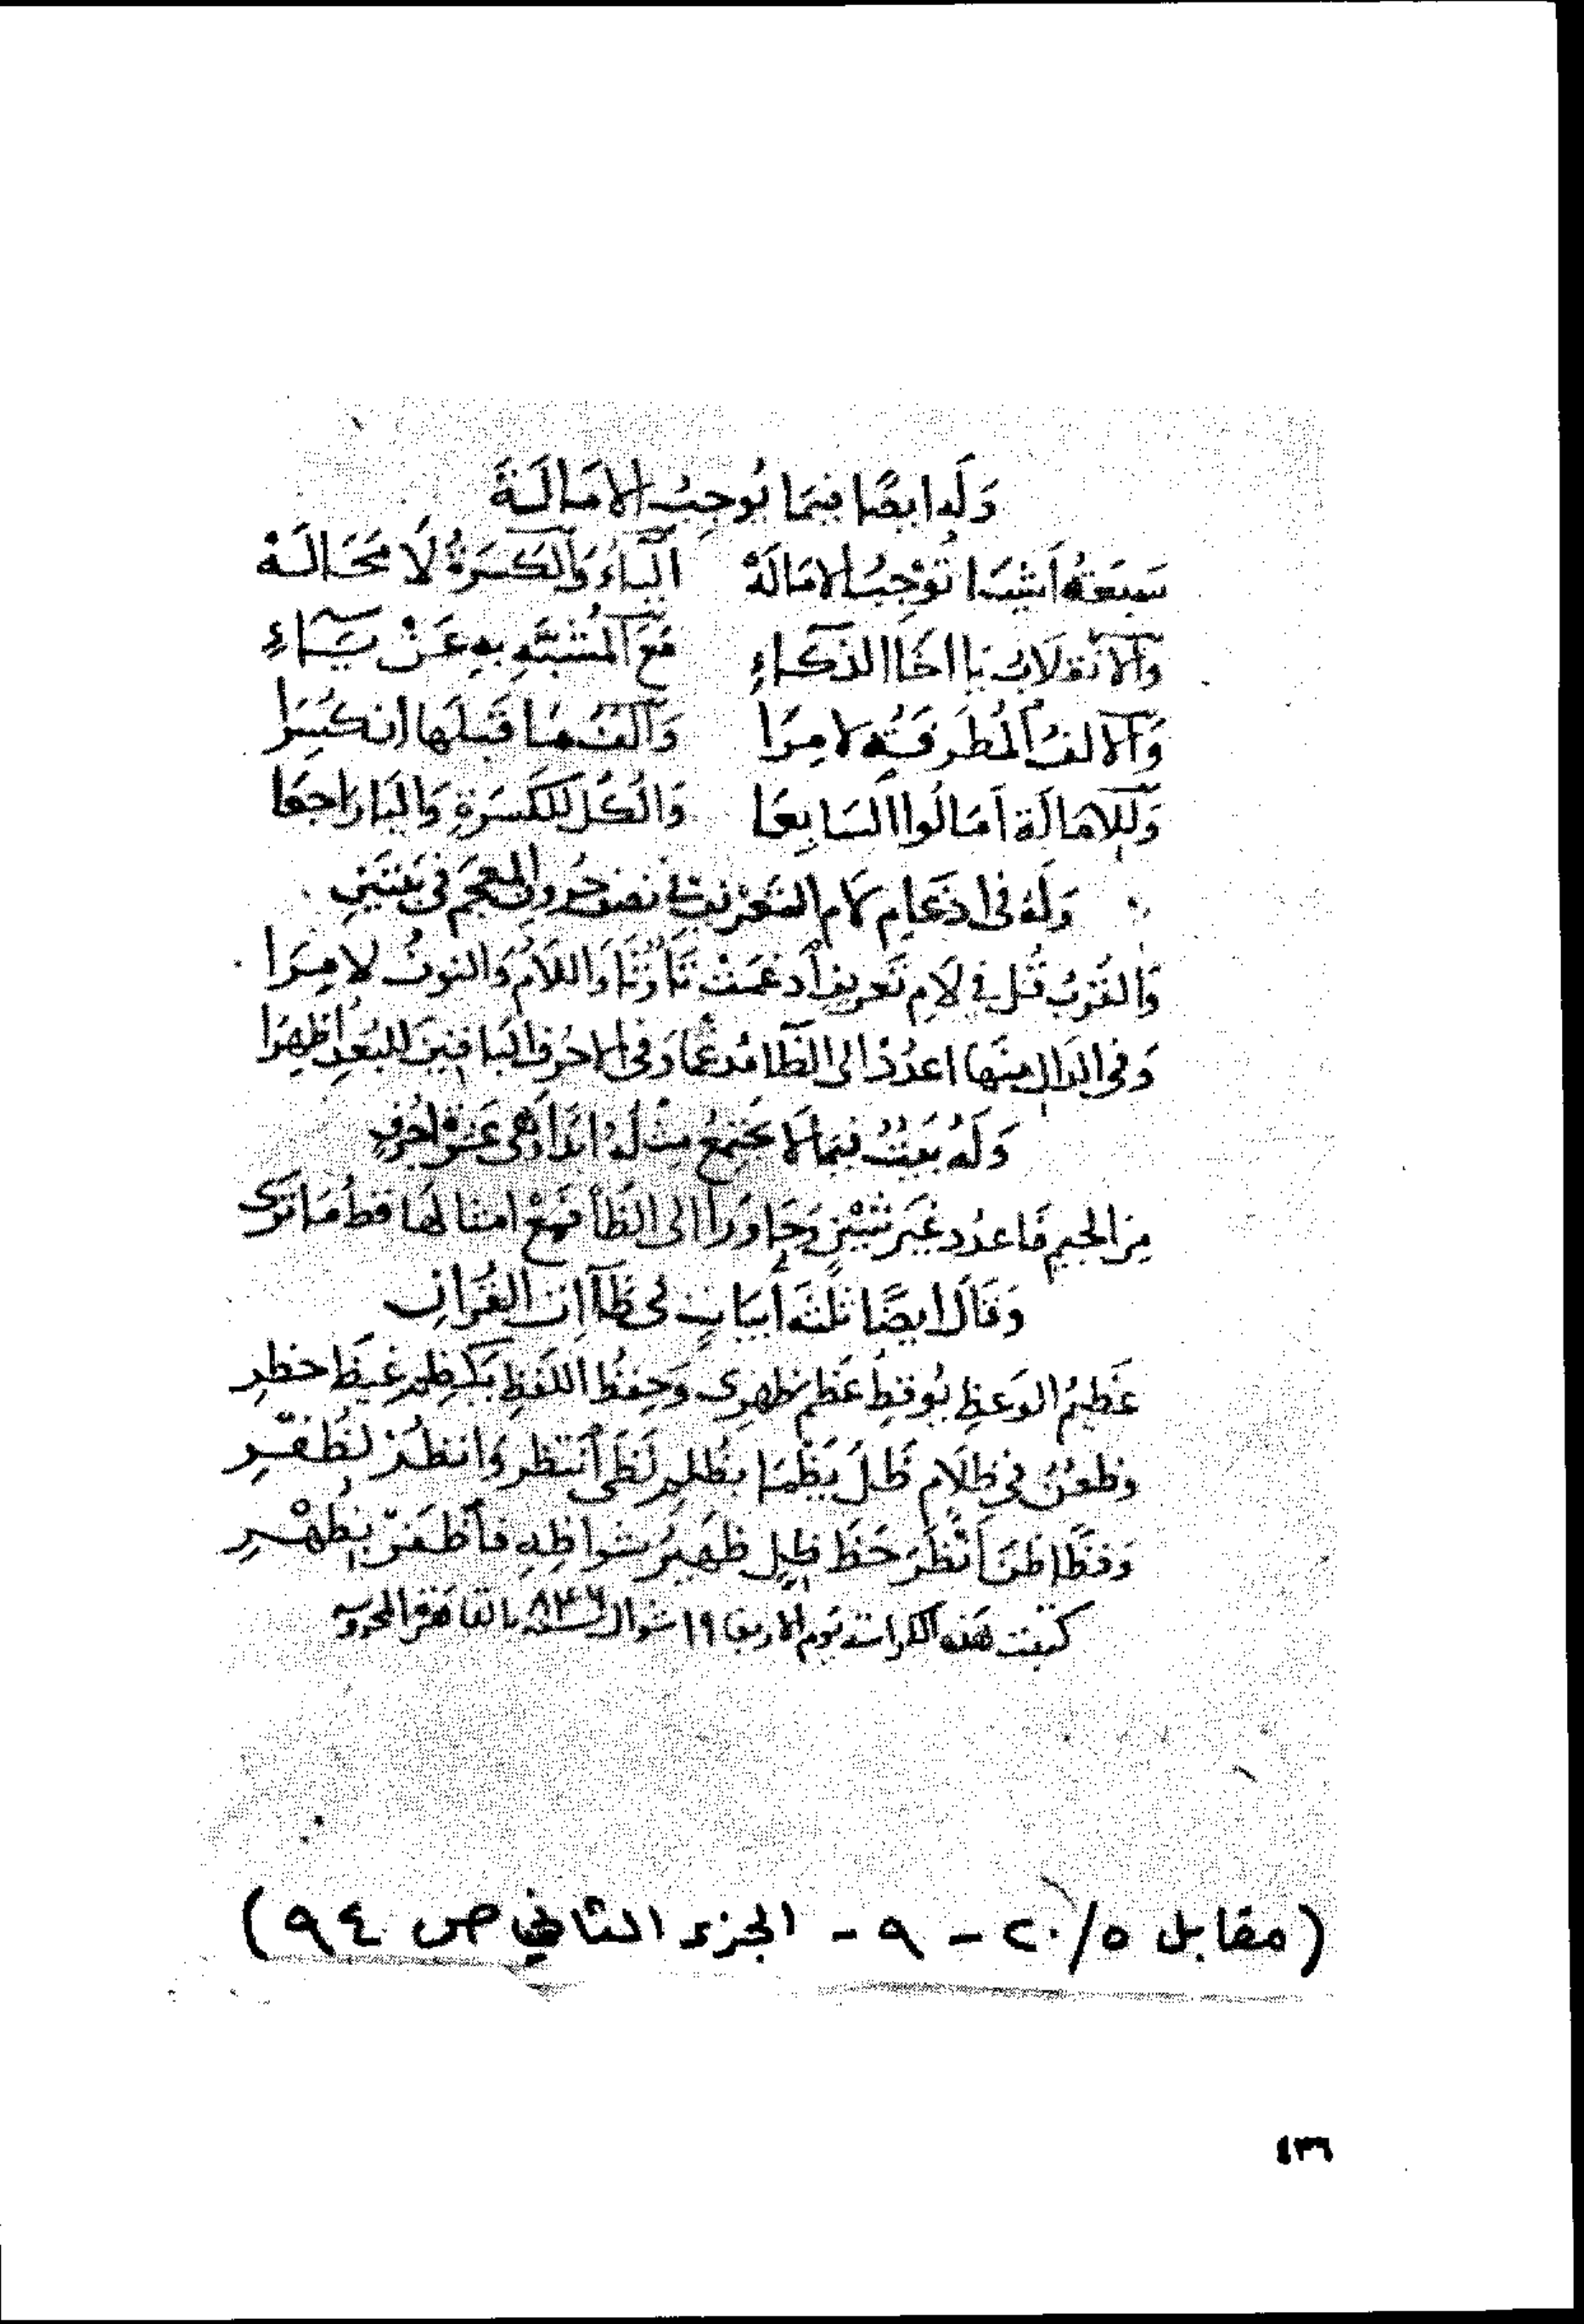 وَلَه ايضًا فيمَا يُوجِبُ الامَالَة
سَبعَةُ أشيَا تُوْجِبُ الامَالَهْ اليَاءُ وَالكَسَرَةُ لَا مَحَالَهْ
وَالانْقلَابُ يَا اخَا الذكَاءِ مَعَ المُشَبَّهِ بهِ عَنْ يَاءِ
وَالالفُ المُطَرفَةُ لا مِرَا وَالفٌ مَا قَبلَهَا انكسَرَا
وَللامَالَة أمَالُوا السَابِعَا وَالكُل للكَسرَةِ وَاليَا رَاجعَا
وَلَهُ فى ادغام لام التعريف نصف حروف المعجم فى بيتين
وَالقُربُ قُل فى لَامِ تَعريفٍ أدغمَتْ تَا وَثَا وَاللَامُ وَالنونُ لا مِرَا
وَفى الدال منهَا اعدُدْ الى الظَا مُدغما وَفى الاحرُف البَاقينَ للبُعدِ أظهِرَا
وَلَهُ بَيتٌ فيمَا لَا يجتمعُ مثلَهُ ابدًا وَهى عَشرة احرُفٍ
مِن الجيم فَاعدُد غيرَ شيْنٍ وَجَاوزا الى الظَا فمَعْ امثالهَا قط مَا تَرى
وَقَالَ ايضًا ثلثَة أبيَاتٍ فى ظاآت القُرانِ
عَظيمُ الوَعظِ يُوقظ عَظم ظَهرِى وَحِفظُ اللفظِ يَكظِم غيظَ خطرِ
وظعنٌ فى ظلَام ظَلَ يَظمَا بظلم لَظى أنتظر وَانظُرْ لظُفرِ
وَفظًا ظنَ أنْظرَ حَظ ظِلٍ ظهَيرُ شواظِهِ فَأظفَرْ بظهْرِ
كتبت هذه الكراسة يوم الاربعا ١٩ شوال سنة ٨٣٦ بالقاهرة المحروسه
(مقابل ٢٠/٥ - ٩ - الجزء الثاني ص ٩٤)
٤٣٦